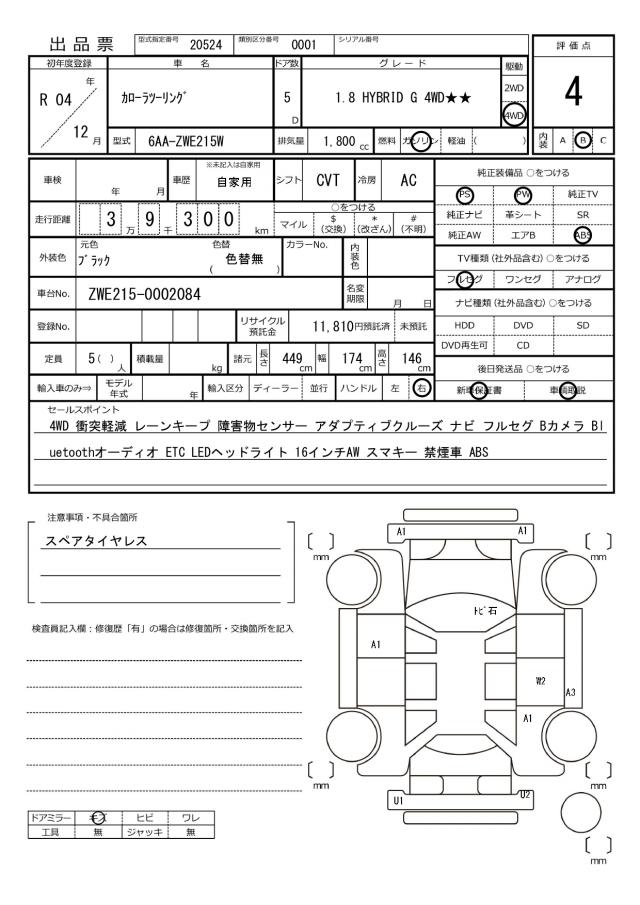 出品票 型式指定番号 20524 類別区分番号 0001 シリアル番号
評価点
初年度登録 車名 ドア数 グレード 駆動
R 04 年 カローラツーリング 5 D 1.8 HYBRID G 4WD★★ 2WD 4
12 月 4WD
型式 6AA-ZWE215W 排気量 1,800 cc 燃料 ガソリン 軽油 ( ) 内装 A B C
車検 年 月 車歴 ※未記入は自家用 自家用 シフト CVT 冷房 AC 純正装備品 ○をつける
PS PW 純正TV
走行距離 3 万 9 千 3 0 0 km ○をつける 純正ナビ 革シート SR
マイル $ (交換) * (改ざん) # (不明) 純正AW エアB ABS
外装色 元色 ブラック 色替 ( 色替無 ) カラーNo. 内装色 TV種類 (社外品含む) ○をつける
フルセグ ワンセグ アナログ
車台No. ZWE215-0002084 名変期限 月 日 ナビ種類 (社外品含む) ○をつける
登録No. リサイクル預託金 11,810円預託済 未預託 HDD DVD SD
DVD再生可 CD
定員 5 ( ) 人 積載量 kg 諸元 長さ 449 cm 幅 174 cm 高さ 146 cm 後日発送品 ○をつける
輸入車のみ⇒ モデル年式 年 輸入区分 ディーラー 並行 ハンドル 左 右 新車保証書 車輌取説
セールスポイント
4WD 衝突軽減 レーンキープ 障害物センサー アダプティブクルーズ ナビ フルセグ Bカメラ Bl
uetoothオーディオ ETC LEDヘッドライト 16インチAW スマキー 禁煙車 ABS
注意事項・不具合箇所
スペアタイヤレス
検査員記入欄:修復歴「有」の場合は修復箇所・交換箇所を記入
A1 A1
[ ] mm [ ] mm
トビ石
A1
W2
A3
A1
[ ] mm [ ] mm
U1 U2
[ ] mm
ドアミラー キズ ヒビ ワレ
工具 無 ジャッキ 無